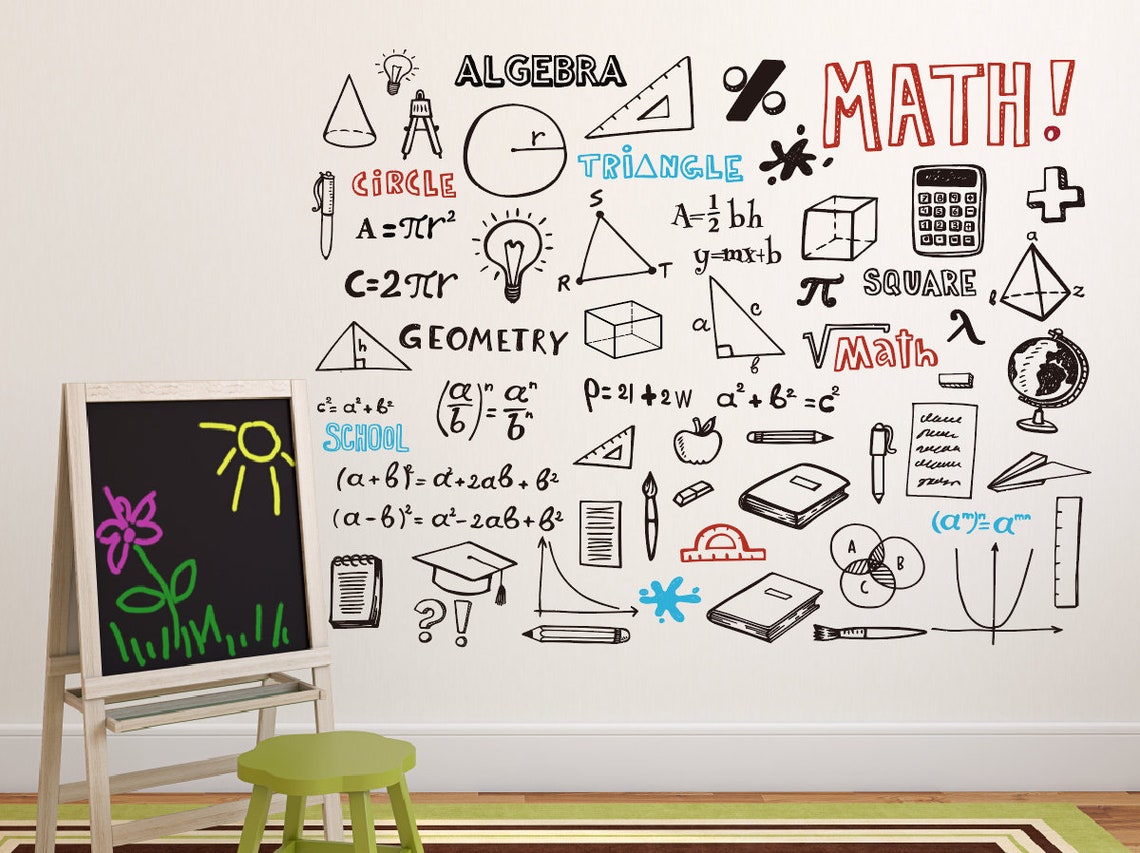 ALGEBRA
%
MATH!
r
TRIANGLE
CIRCLE
A=πr²
S
R
T
A=½bh
y=mx+b
+
a
b
z
C=2πr
π
SQUARE
λ
GEOMETRY
h
a
c
b
√Math
c²=a²+b²
(a/b)ⁿ=aⁿ/bⁿ
P=2l+2w
a²+b²=c²
SCHOOL
(a+b)²=a²+2ab+b²
(a-b)²=a²-2ab+b²
(aᵐ)ⁿ=aᵐⁿ
A
B
C
?!